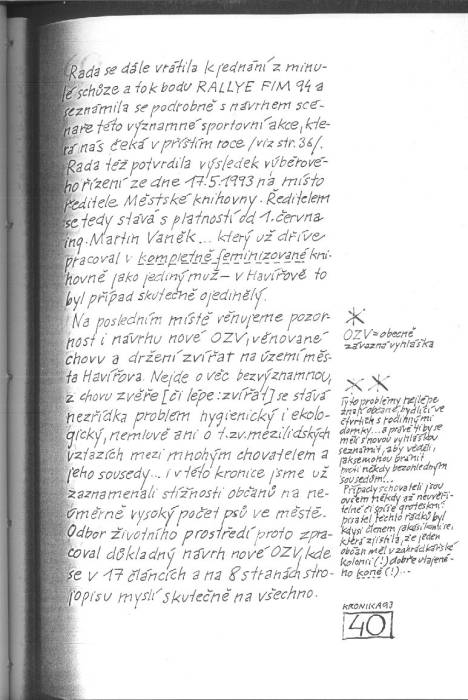 Rada se dále vrátila k jednání z minu-
lé schůze a to k bodu RALLYE FIM 94 a
seznámila se podrobně s návrhem scé-
náře této významné sportovní akce, kte-
rá nás čeká v příštím roce /viz str. 36/.
Rada též potvrdila výsledek výběrové-
ho řízení ze dne 17.5.1993 na místo
ředitele Městské knihovny. Ředitelem
se tedy stává s platností od 1. června
ing. Martin Vaněk... který už dříve
pracoval v kompletně feminizované kni-
hovně jako jediný muž – v Havířově to
byl případ skutečně ojedinělý.
Na posledním místě věnujeme pozor-
nost i návrhu nové OZV, věnované
chovu a držení zvířat na území měs-
ta Havířova. Nejde o věc bezvýznamnou,
z chovu zvěře [či lépe: zvířat] se stává
nezřídka problém hygienický i ekolo-
gický, nemluvě ani o t.zv. mezilidských
vztazích mezi mnohým chovatelem a
jeho sousedy... i v této kronice jsme už
zaznamenali stížnosti občanů na ne-
úměrně vysoký počet psů ve městě.
Odbor životního prostředí proto zpra-
coval důkladný návrh nové OZV, kde
se v 17 článcích a na 8 stranách stro-
jopisu myslí skutečně na všechno.
*
OZV = obecně
závazná vyhláška
**
Tyto problémy nejlépe
znají občané, bydlící ve
čtvrtích s rodinnými
domky... a právě ti by se
měli s novou vyhláškou
seznámit, aby věděli,
jak se mohou bránit
proti někdy bezohledným
sousedům...
Případy s chovateli jsou
ovšem někdy až neuvěři-
telné či spíše groteskní:
pisatel těchto řádků byl
kdysi členem jakési komise,
která zjistila, že jeden
občan měl v zahrádkářské
kolonii (!) dobře utajené-
ho koně (!)...
KRONIKA 93
40